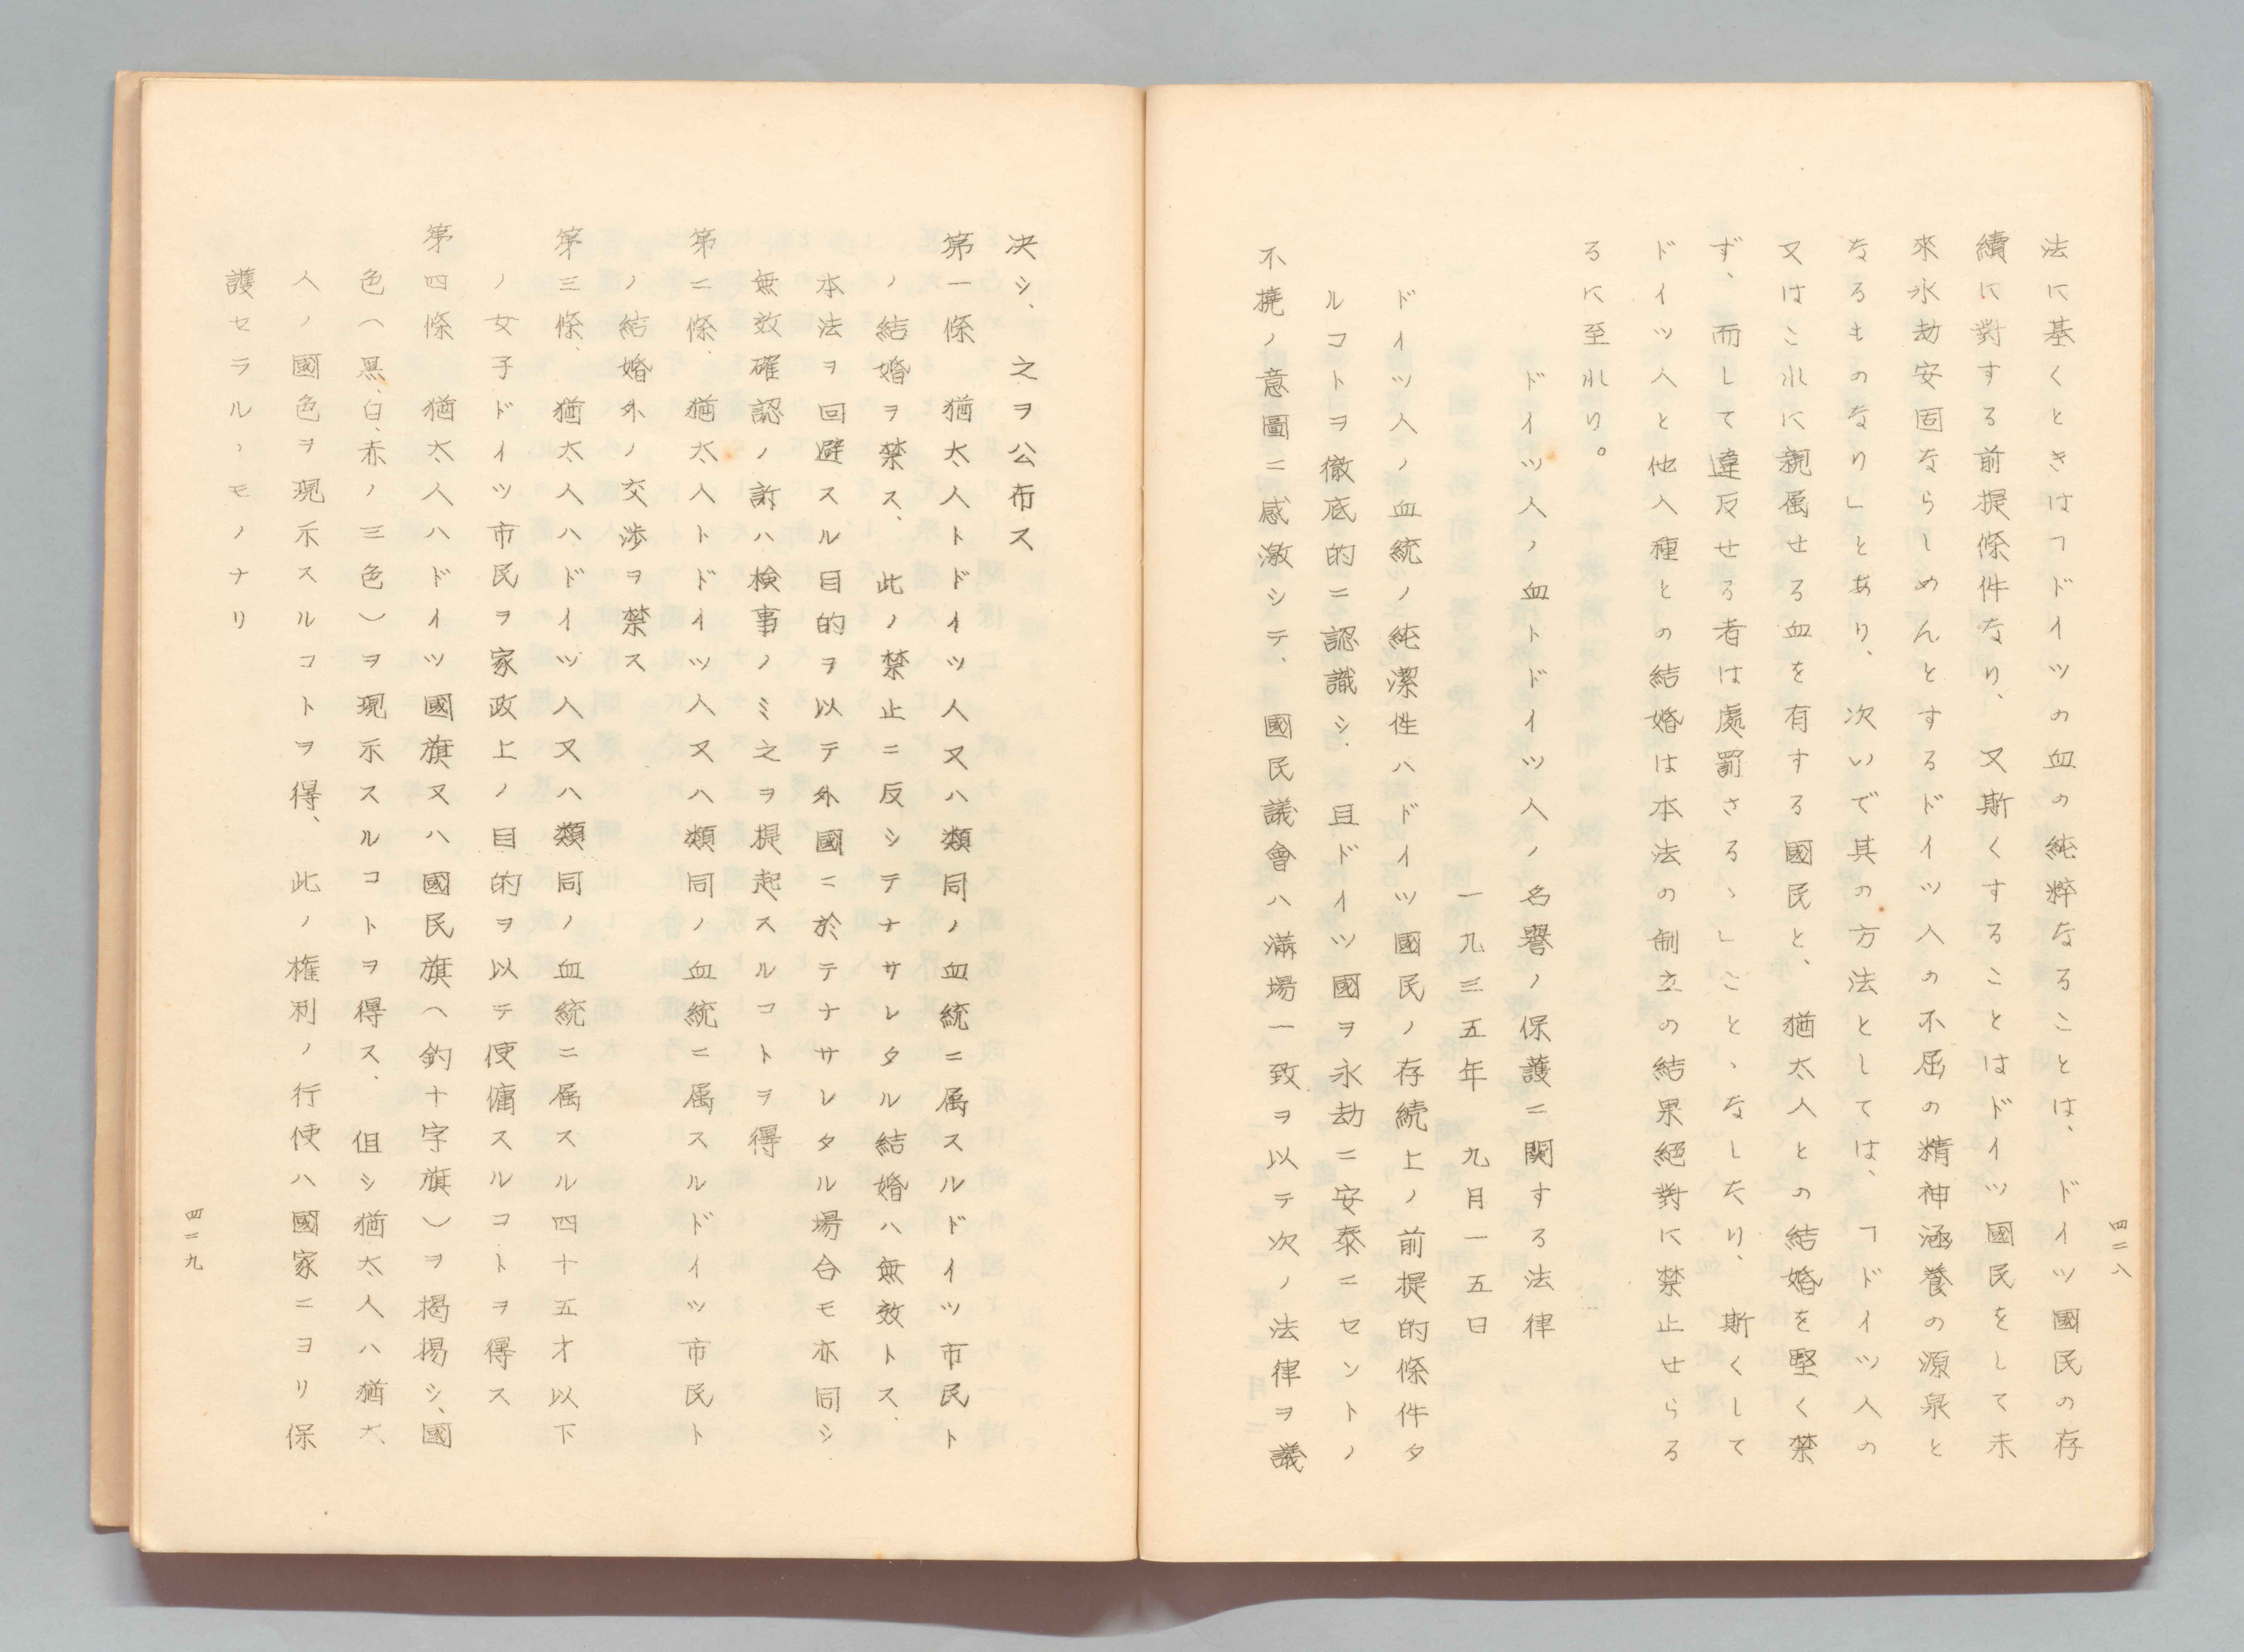 四二八
法に基くときは「ドイツの血の純粋なることは、ドイツ國民の存
續に對する前提條件なり、又斯くすることはドイツ國民をして未
來永劫安固ならしめんとするドイツ人の不屈の精神涵養の源泉と
なるものなり」とあり、次いで其の方法としては、「ドイツ人の
又はこれに親属せる血を有する國民と、猶太人との結婚を堅く禁
ず、而して違反せる者は處罰さるゝ」こと、なしたり、斯くして
ドイツ人と他人種との結婚は本法の制立の結果絕對に禁止せらる
るに至れり。
ドイツ人ノ血トドイツ人ノ名譽ノ保護ニ関する法律
一九三五年 九月一五日
ドイツ人ノ血統ノ純潔性ハドイツ國民ノ存続上ノ前提的條件タ
ルコトヲ徹底的ニ認識シ、且ドイツ國ヲ永劫ニ安泰ニセントノ
不撓ノ意圖ニ感激シテ、國民議會ハ滿場一致ヲ以テ次ノ法律ヲ議
决シ、之ヲ公布ス
第一條 猶太人トドイツ人又ハ類同ノ血統ニ属スルドイツ市民ト
ノ結婚ヲ禁ス、此ノ禁止ニ反シテナサレタル結婚ハ無效トス、
本法ヲ回避スル目的ヲ以テ外國ニ於テナサレタル場合モ亦同シ
無效確認ノ訴ハ検事ノミ之ヲ提起スルコトヲ得
第二條、猶太人トドイツ人又ハ類同ノ血統ニ属スルドイツ市民ト
ノ結婚外ノ交渉ヲ禁ス
第三條、猶太人ハドイツ人又ハ類同ノ血統ニ属スル四十五才以下
ノ女子ドイツ市民ヲ家政上ノ目的ヲ以テ使傭スルコトヲ得ス
第四條 猶太人ハドイツ國旗又ハ國民旗（釣十字旗）ヲ揭揚シ、國
色（黒、白、赤ノ三色）ヲ現示スルコトヲ得ス、伹シ猶太人ハ猶太
人ノ國色ヲ現示スルコトヲ得、此ノ権利ノ行使ハ國家ニヨリ保
護セラルヽモノナリ
四二九